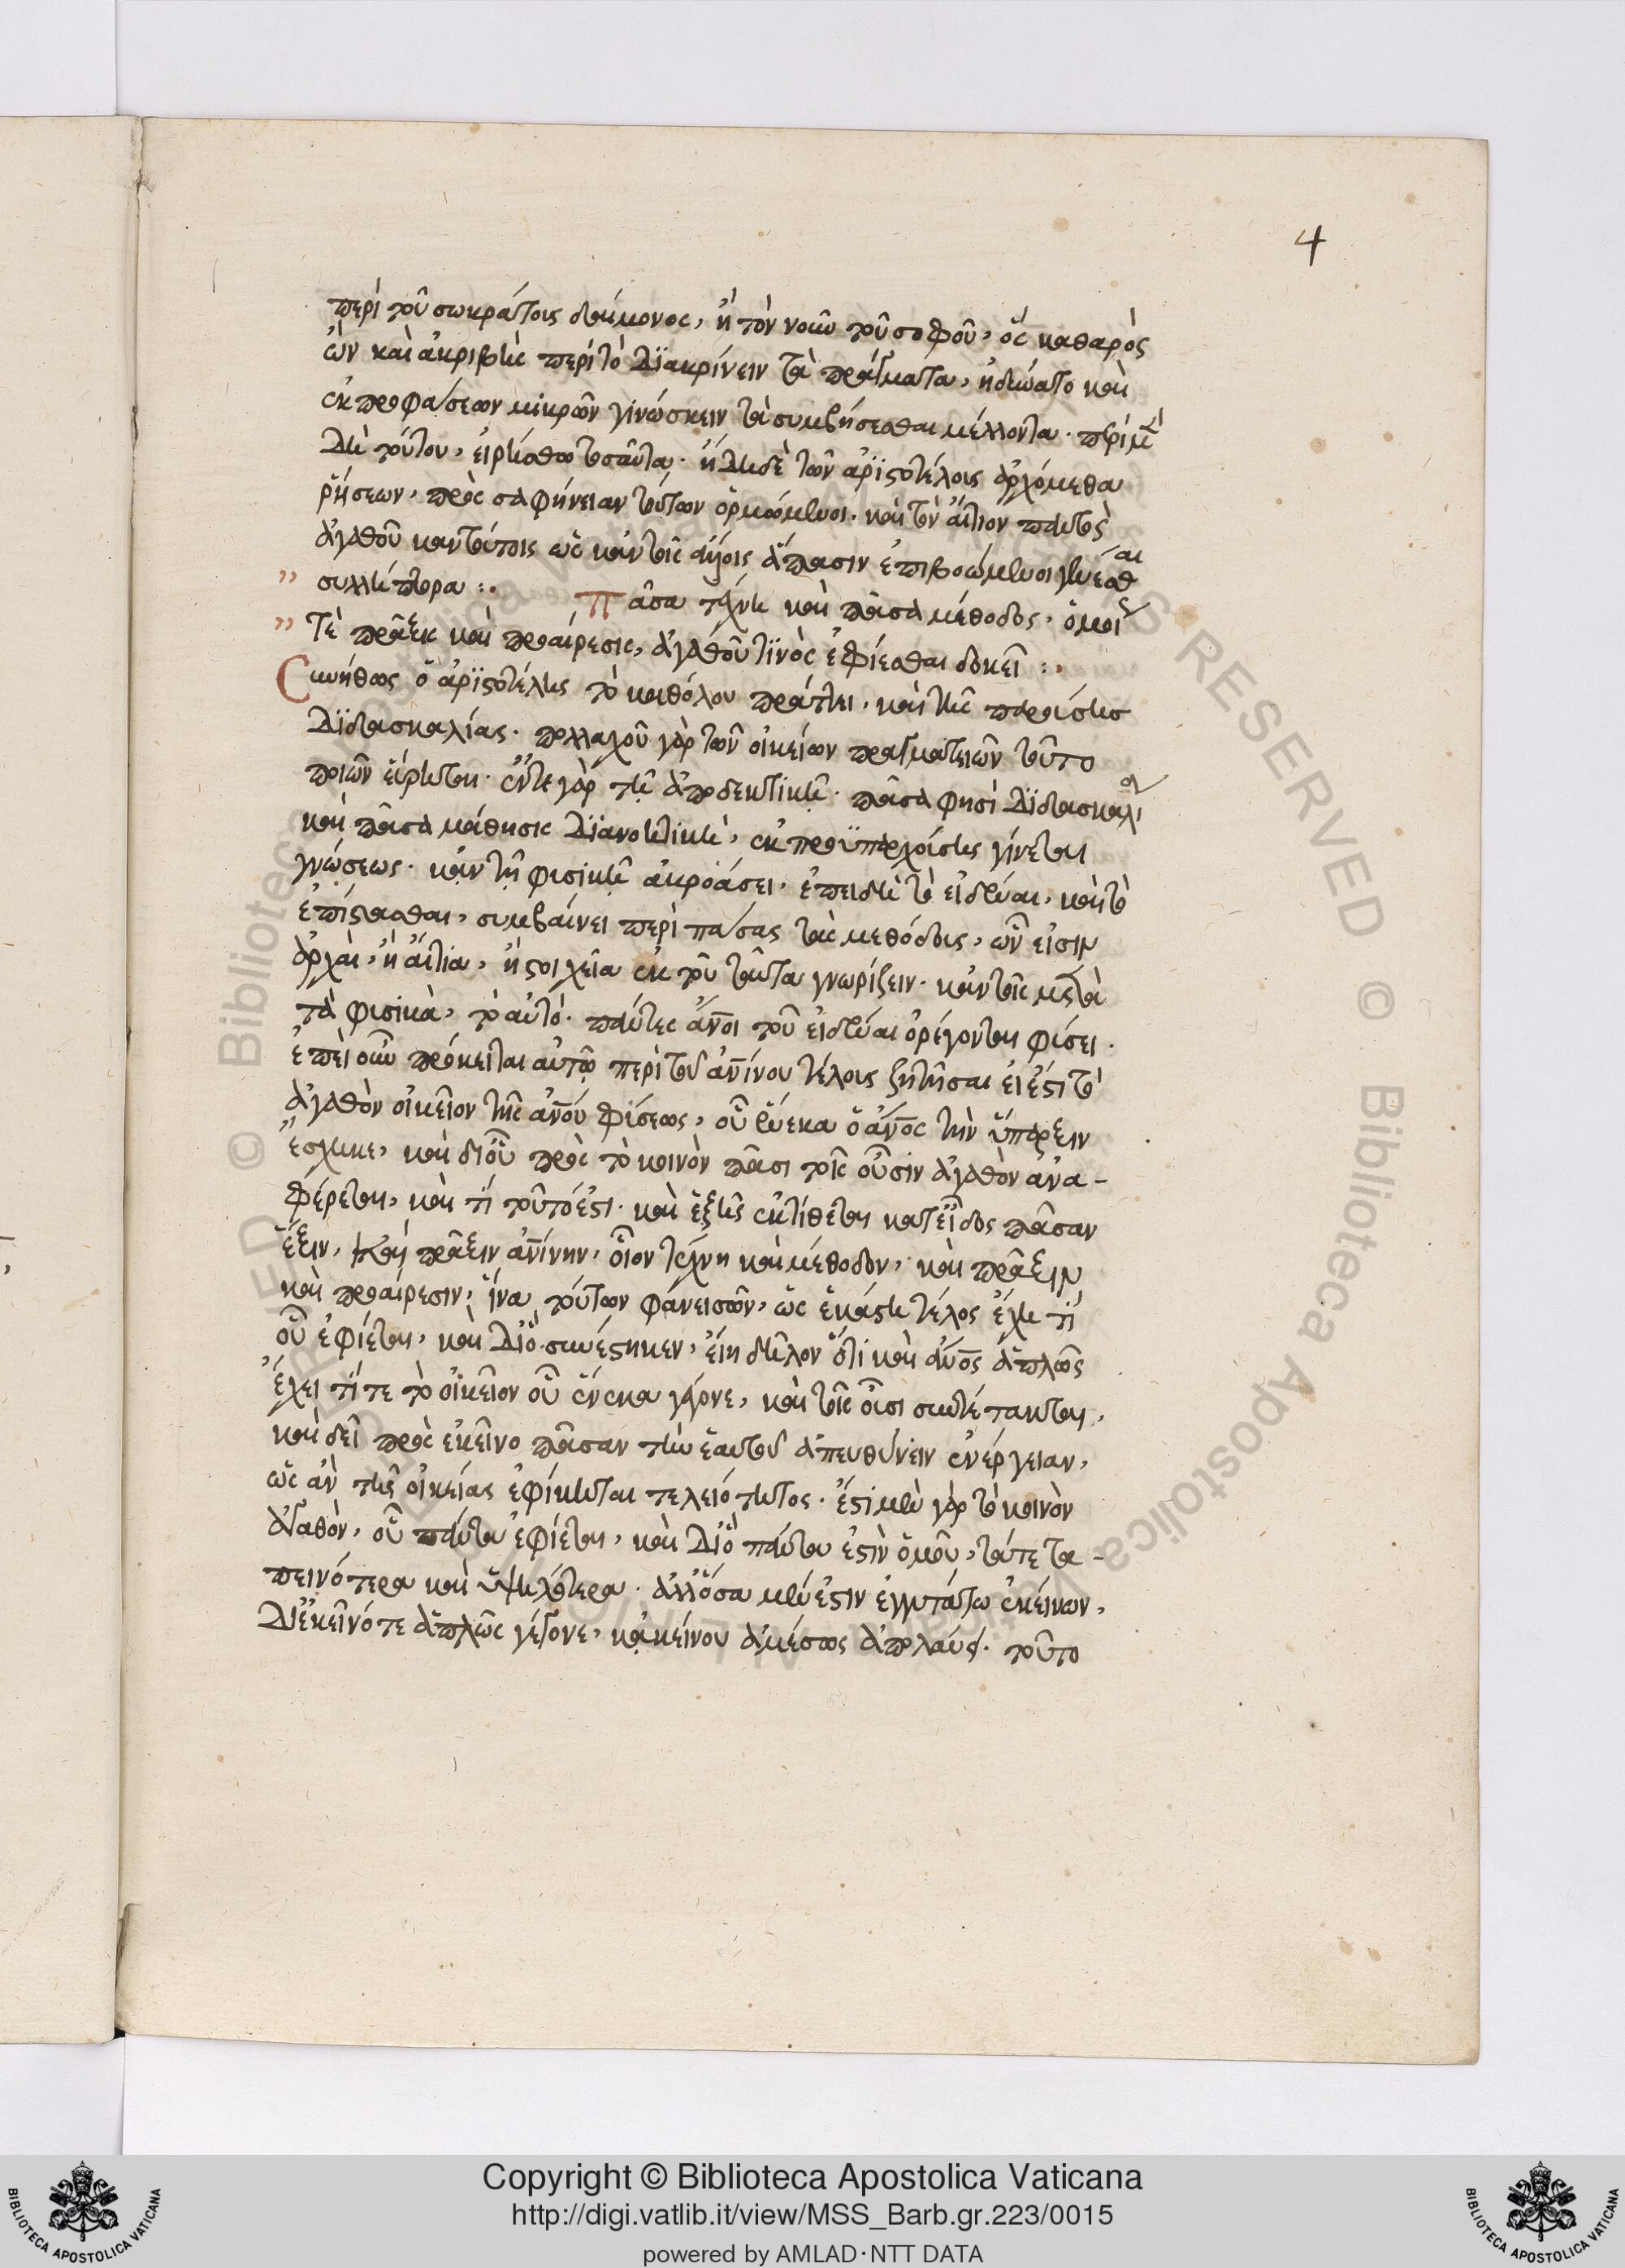 4
περὶ τοῦ σωκράτους δαίμονος, ἢ τὸν νοῦν τοῦ σοφοῦ, ὃς καθαρὸς
ὢν καὶ ἀκριβὴς περὶ τὸ διακρίνειν τὰ πράγματα, ἠδύνατο καὶ
ἐκ προφάσεων μικρῶν γινώσκειν τὰ συμβήσεσθαι μέλλοντα. περὶ μὲν
δὴ τούτου, εἰρήσθω τοσαῦτα. ἤδη δὲ τῶν ἀριστοτέλους ἀρχόμεθα
ῥήσεων, πρὸς σαφήνειαν τούτων ὁρμώμενοι. καὶ τὸν αἴτιον παντὸς
ἀγαθοῦ καὶ τούτοις ὡς κἀν τοῖς ἄλλοις ἅπασιν ἐπιβοώμενοι γενέσθαι
" συλλήπτορα :. Πᾶσα τέχνη καὶ πᾶσα μέθοδος, ὁμοίως
" τὲ πρᾶξις καὶ προαίρεσις, ἀγαθοῦ τινὸς ἐφίεσθαι δοκεῖ :.
Συνήθως ὁ ἀριστοτέλης τὸ καθόλου πράττει, καὶ τῆς παρούσης
διδασκαλίας. πολλαχοῦ γὰρ τῶν οἰκείων πραγματειῶν τοῦτο
ποιῶν εὕρηται. ἔν τε γὰρ τῇ ἀποδεικτικῇ. πᾶσα φησὶ διδασκαλία
καὶ πᾶσα μάθησις διανοητικὴ, ἐκ προϋπαρχούσης γίνεται
γνώσεως. κἀν τῇ φυσικῇ ἀκροάσει. ἐπειδὴ τὸ εἰδέναι, καὶ τὸ
ἐπίστασθαι, συμβαίνει περὶ πάσας τὰς μεθόδους, ὧν εἰσιν
ἀρχαὶ, ἢ αἴτια, ἢ στοιχεῖα ἐκ τοῦ ταῦτα γνωρίζειν. κἀν τοῖς μετὰ
τὰ φυσικὰ, τὸ αὐτό. πάντες ἄνοι τοῦ εἰδέναι ὀρέγονται φύσει.
ἐπεὶ οὖν πρόκειται αὐτῷ περὶ τοῦ ἀνίνου τέλους ζητῆσαι εἰ ἔστι τὸ
ἀγαθὸν οἰκεῖον τῆς ἀνου φύσεως, οὗ ἕνεκα ὁ ἄνος τὴν ὕπαρξιν
ἔσχηκε, καὶ δι' οὗ πρὸς τὸ κοινὸν πᾶσι τοῖς οὖσιν ἀγαθὸν ἀνα-
φέρεται, καὶ τί τοῦτό ἐστι. καὶ ἑξῆς ἐκτίθεται κατ' εἶδος πᾶσαν
ἕξιν, καὶ πρᾶξιν ἀνίνην. οἷον τέχνη καὶ μέθοδον, καὶ πρᾶξιν
καὶ προαίρεσιν, ἵνα τούτων φάνεισῶν, ὡς ἑκάστη τέλος ἔχη τί
οὗ ἐφίεται, καὶ δι' ὃ συνέστηκεν, εἴη δῆλον ὅτι καὶ ἄνος ἁπλῶς
ἔχει τί τε τὸ οἰκεῖον οὗ ἕνεκα γέγονε, καὶ τοῖς οὖσι συντέτακται,
καὶ δεῖ πρὸς ἐκεῖνο πᾶσαν τὴν ἑαυτοῦ ἀπευθύνειν ἐνέργειαν,
ὡς ἂν τῆς οἰκείας ἐφίκηται τελειότητος. ἔστι μὲν γὰρ τὸ κοινὸν
ἀγαθὸν, οὗ πάντα ἐφίεται, καὶ δι' ὃ πάντα ἐστὶν ὁμοῦ, τά τε τα-
πεινότερα καὶ ὑψηλότερα. ἀλλ' ὅσα μέν ἐστιν ἐγγυτάτω ἐκείνων,
δι' ἐκεῖνό τε ἁπλῶς γέγονε, κἀκείνου ἀμέσως ἀπολαύει. τοῦτο
Copyright © Biblioteca Apostolica Vaticana
http://digi.vatlib.it/view/MSS_Barb.gr.223/0015
powered by AMLAD·NTT DATA